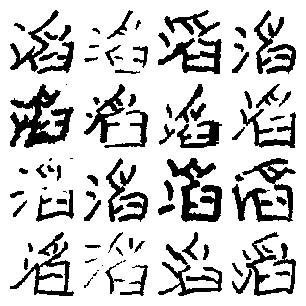 滔滔滔滔
滔滔滔滔
滔滔滔滔
滔滔滔滔